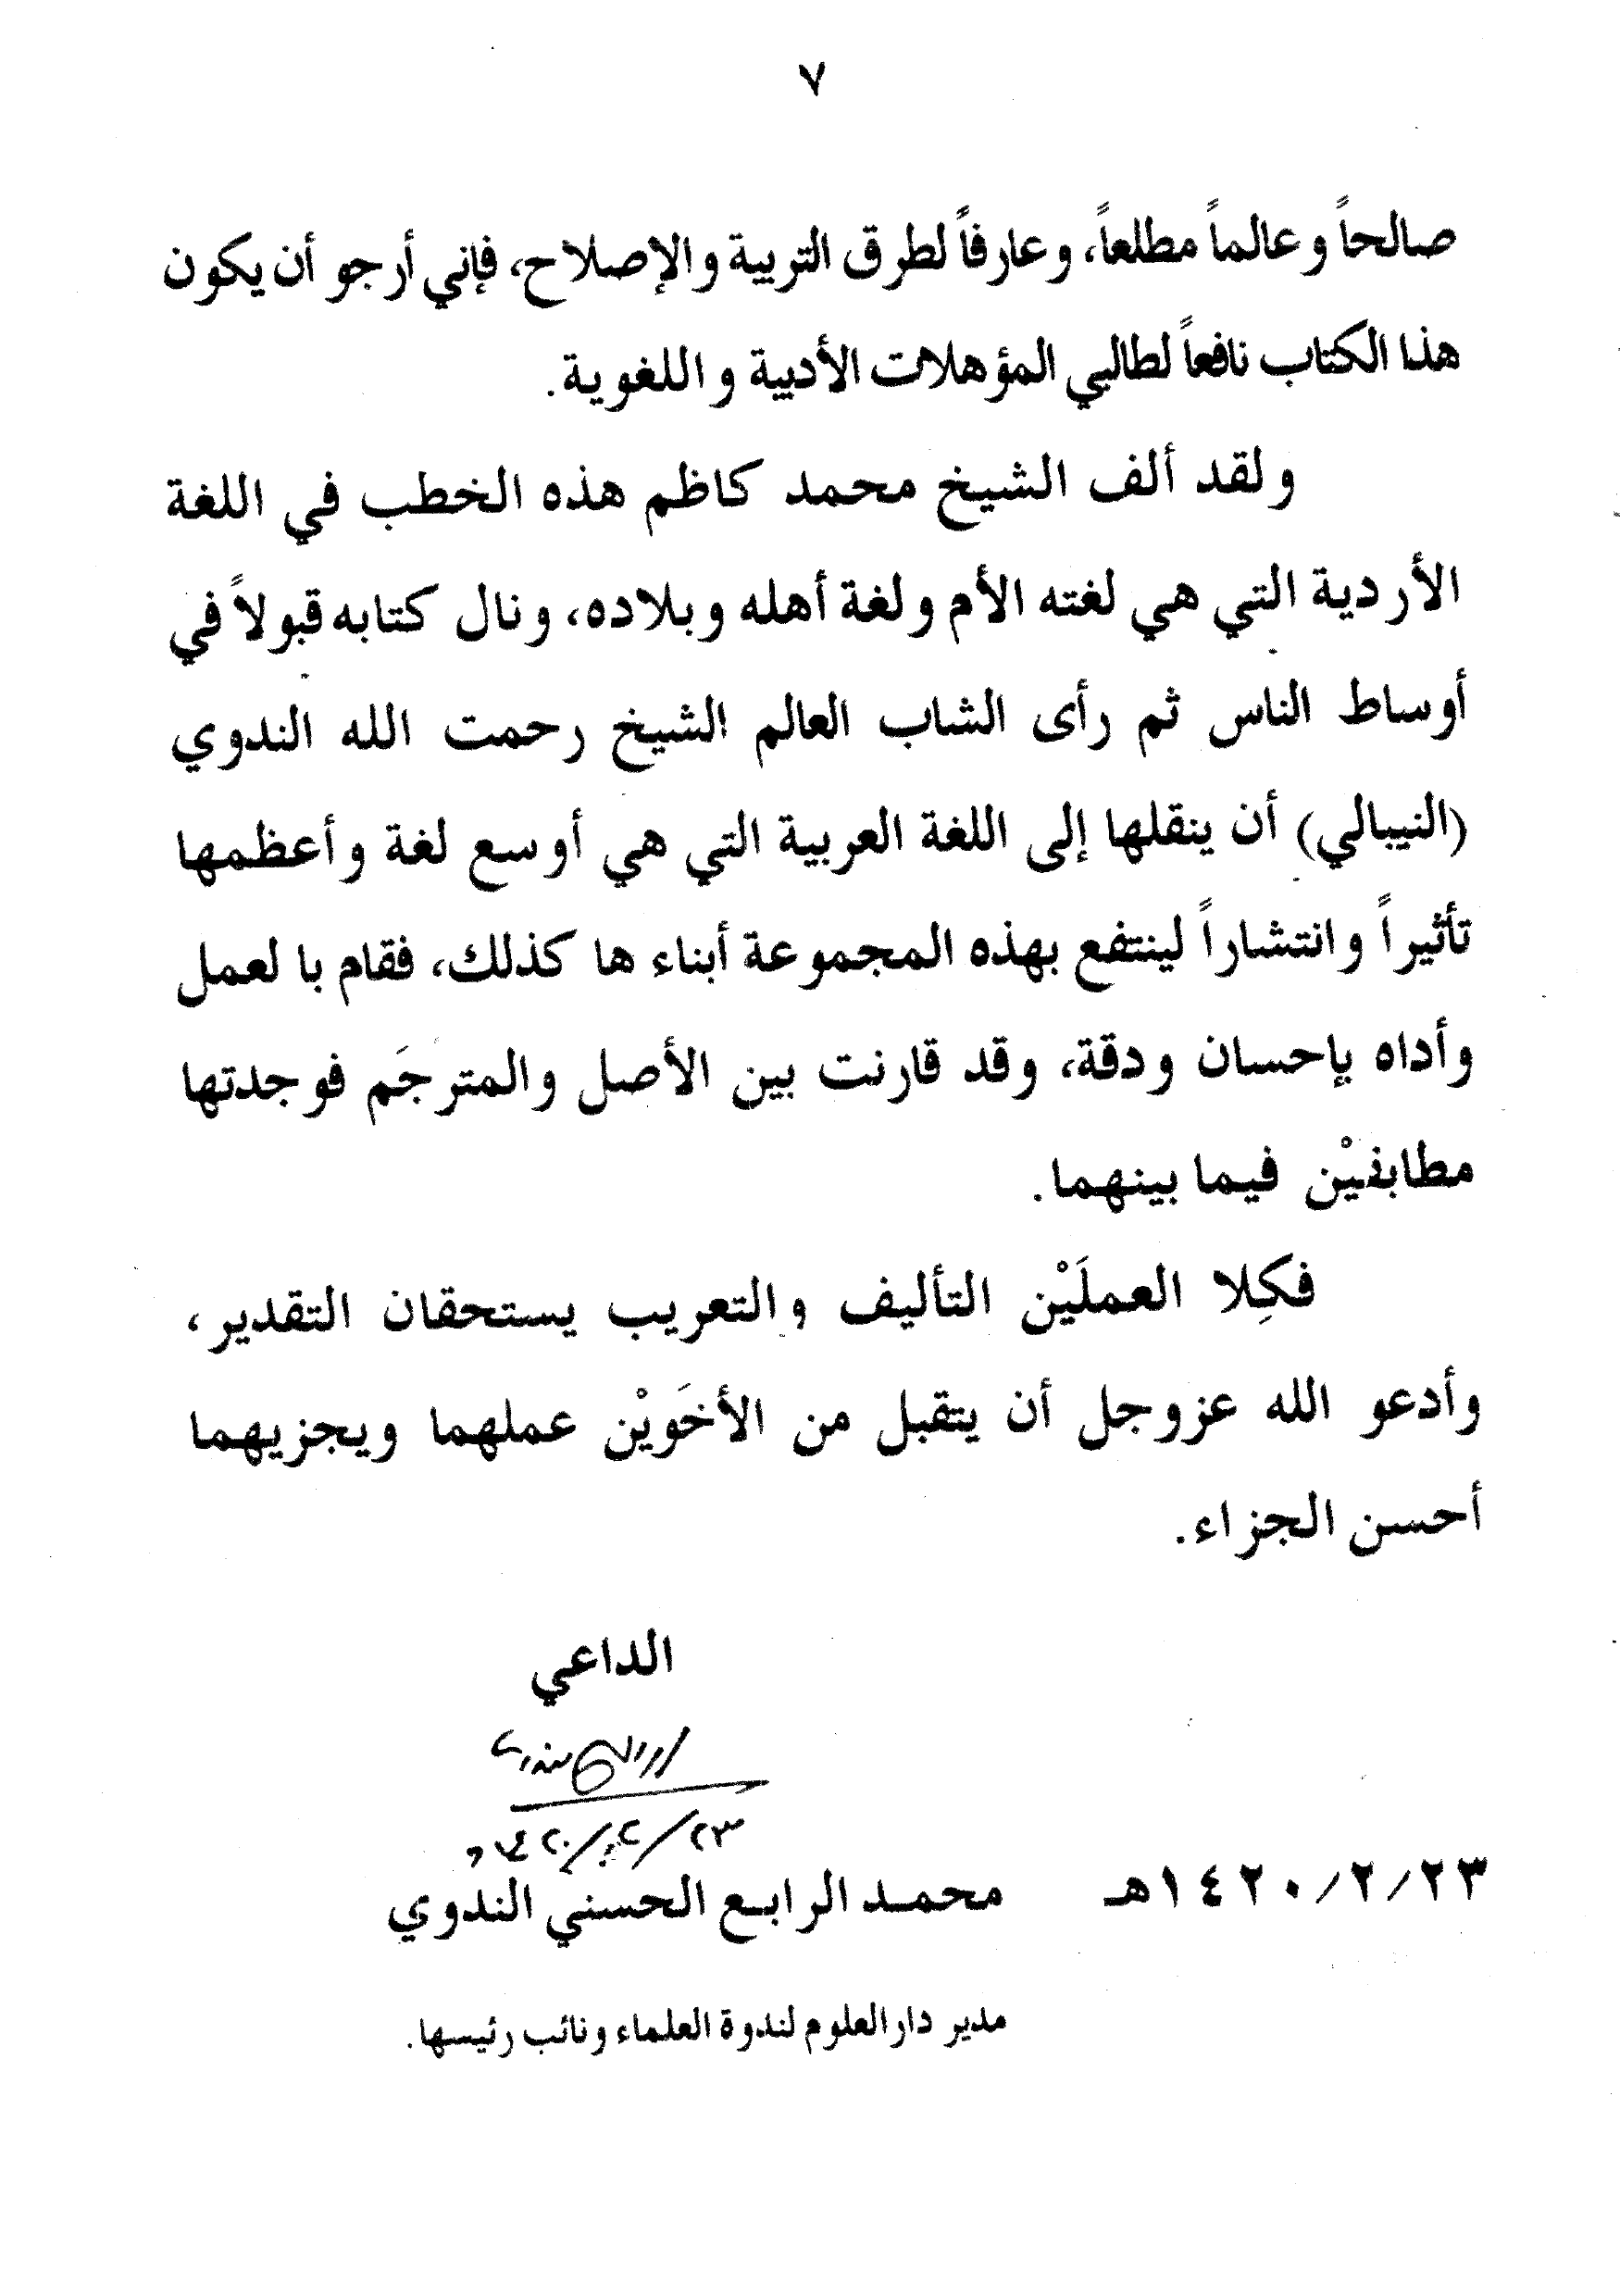 ٧
صالحاً وعالماً مطلعاً، وعارفاً لطرق التربية والإصلاح، فإني أرجو أن يكون
هذا الكتاب نافعاً لطالبي المؤهلات الأدبية و اللغوية.
ولقد ألف الشيخ محمد كاظم هذه الخطب في اللغة
الأردية التي هي لغته الأم ولغة أهله وبلاده، ونال كتابه قبولاً في
أوساط الناس ثم رأى الشاب العالم الشيخ رحمت الله الندوي
(النيبالي) أن ينقلها إلى اللغة العربية التي هي أوسع لغة وأعظمها
تأثيراً وانتشاراً لينتفع بهذه المجموعة أبناء ها كذلك، فقام با لعمل
وأداه بإحسان ودقة، وقد قارنت بين الأصل والمترجَم فوجدتها
مطابقيْن فيما بينهما.
فكِلا العملَيْن التأليف والتعريب يستحقان التقدير،
وأدعو الله عزوجل أن يتقبل من الأخَويْن عملهما ويجزيهما
أحسن الجزاء.
الداعي
٢٣/٢/١٤٢٠هـ
محمد الرابع الحسني الندوي
مدير دارالعلوم لندوة العلماء ونائب رئيسها.